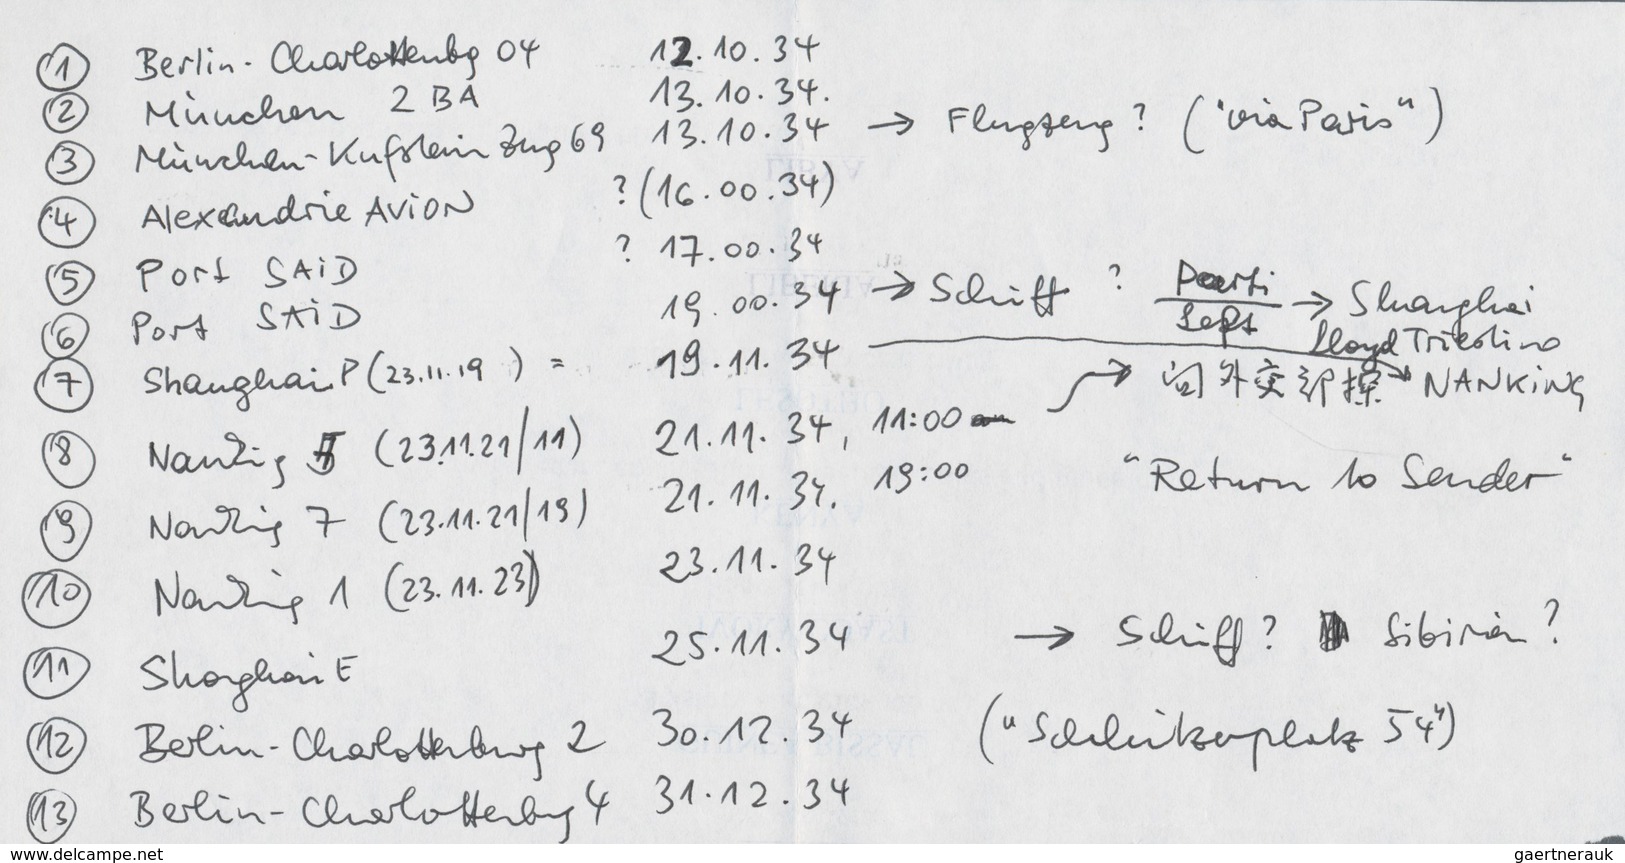 ① Berlin-Charlottenbg 04 12.10.34
② München 2 BA 13.10.34.
③ München-Kufstein Zug 69 13.10.34 → Flugzeug? ("via Paris")
④ Alexandrie AVION ? (16.00.34)
⑤ Port SAID ? 17.00.34
⑥ Port SAID 19.00.34 → Schiff ? → Shanghai
Lloyd Triestino
⑦ Shanghai P (23.11.19) = 19.11.34 → 向外交部探 NANKING
⑧ Nanking (23.11.21/11) 21.11.34, 11:00
⑨ Nanking 7 (23.11.21/19) 21.11.34. 19:00 "Return to Sender"
⑩ Nanking 1 (23.11.23) 23.11.34
⑪ Shanghai E 25.11.34 → Schiff? Sibirien?
⑫ Berlin-Charlottenburg 2 30.12.34 (" 54")
⑬ Berlin-Charlottenbg 4 31.12.34
www.delcampe.net
gaertnerauk